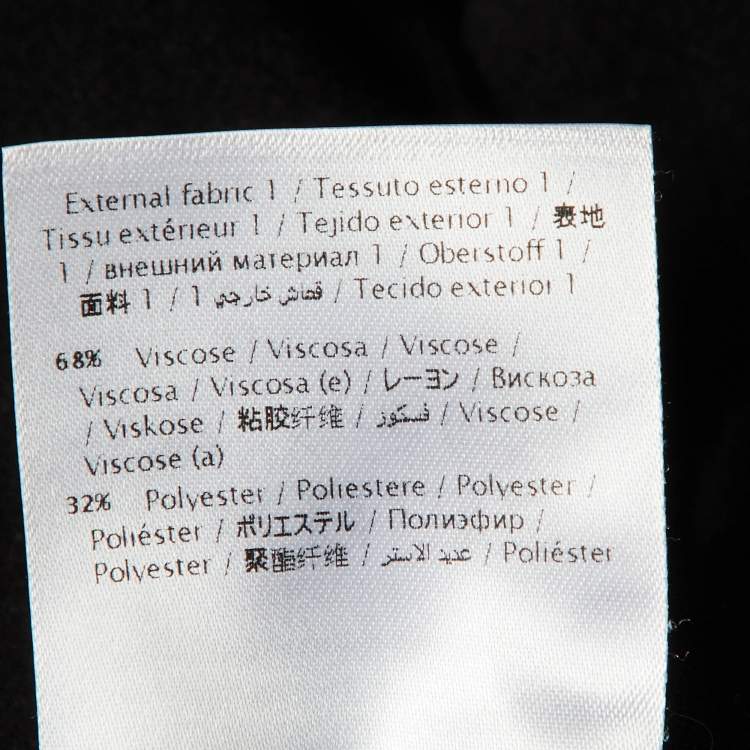 External fabric 1 / Tessuto esterno 1 /
Tissu extérieur 1 / Tejido exterior 1 / 表地
1 / внешний материал 1 / Oberstoff 1 /
面料 1 / 1 قماش خارجي / Tecido exterior 1
68% Viscose / Viscosa / Viscose /
Viscosa / Viscosa (e) / レーヨン / Вискоза
/ Viskose / 粘胶纤维 / فسكوز / Viscose /
Viscose (a)
32% Polyester / Poliestere / Polyester /
Poliéster / ポリエステル / Полиэфир /
Polyester / 聚酯纤维 / عديد الاستر / Poliéster